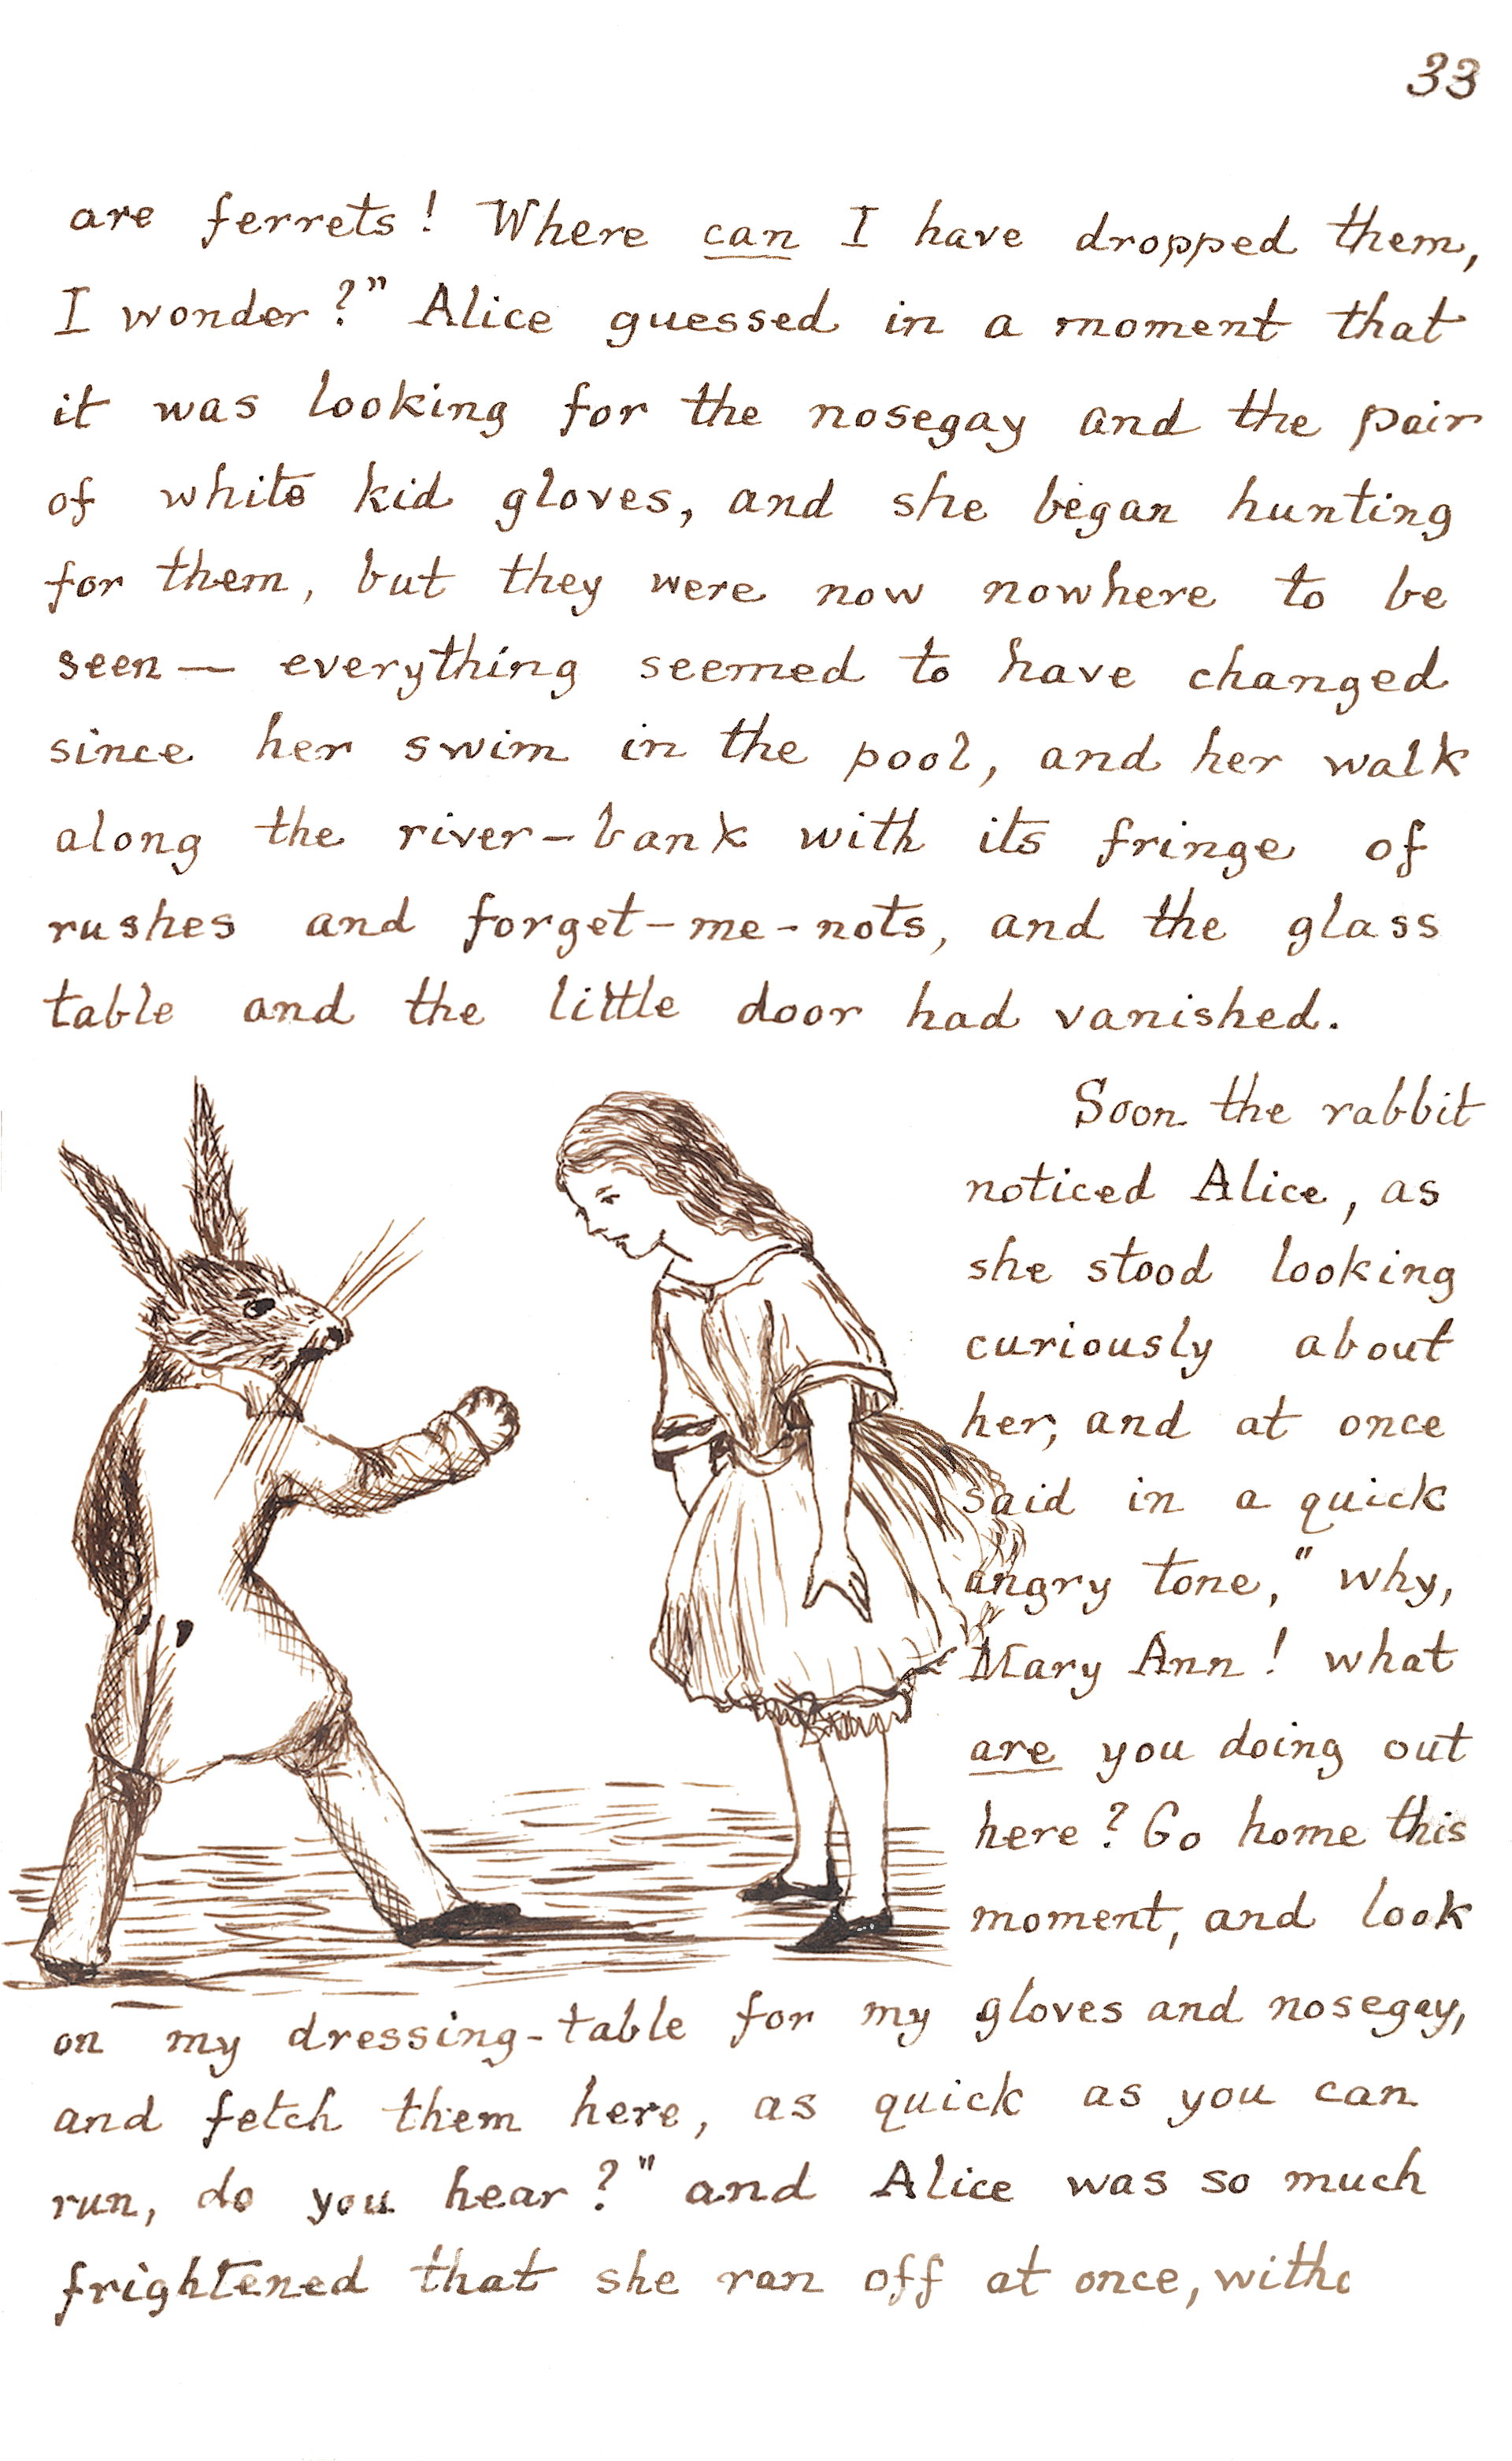 33
are ferrets! Where can I have dropped them,
I wonder?" Alice guessed in a moment that
it was looking for the nosegay and the pair
of white kid gloves, and she began hunting
for them, but they were now nowhere to be
seen — everything seemed to have changed
since her swim in the pool, and her walk
along the river-bank with its fringe of
rushes and forget-me-nots, and the glass
table and the little door had vanished.
Soon the rabbit
noticed Alice, as
she stood looking
curiously about
her, and at once
said in a quick
angry tone, "why,
Mary Ann! what
are you doing out
here? Go home this
moment, and look
on my dressing-table for my gloves and nosegay,
and fetch them here, as quick as you can
run, do you hear?" and Alice was so much
frightened that she ran off at once,